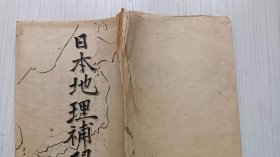 日本地理補